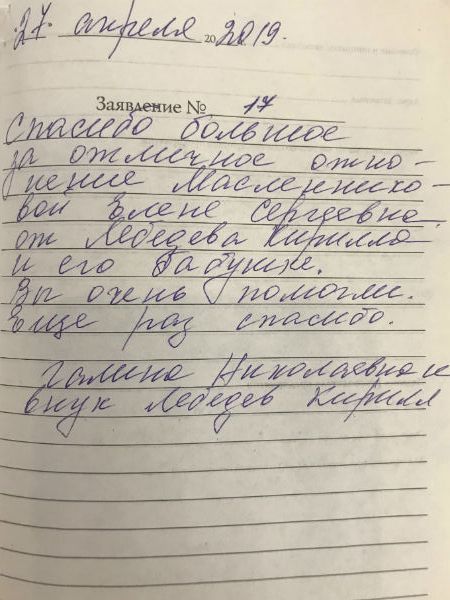 27. апреля 20 2019.
Заявление № 17
Спасибо большое
за отличное отно-
шение Масленнико-
вой Елене Сергеевне
от Лебедева Кирилла
и его бабушке.
Вы очень помогли.
Еще раз спасибо.
Галина Николаевна и
внук Лебедев Кирилл